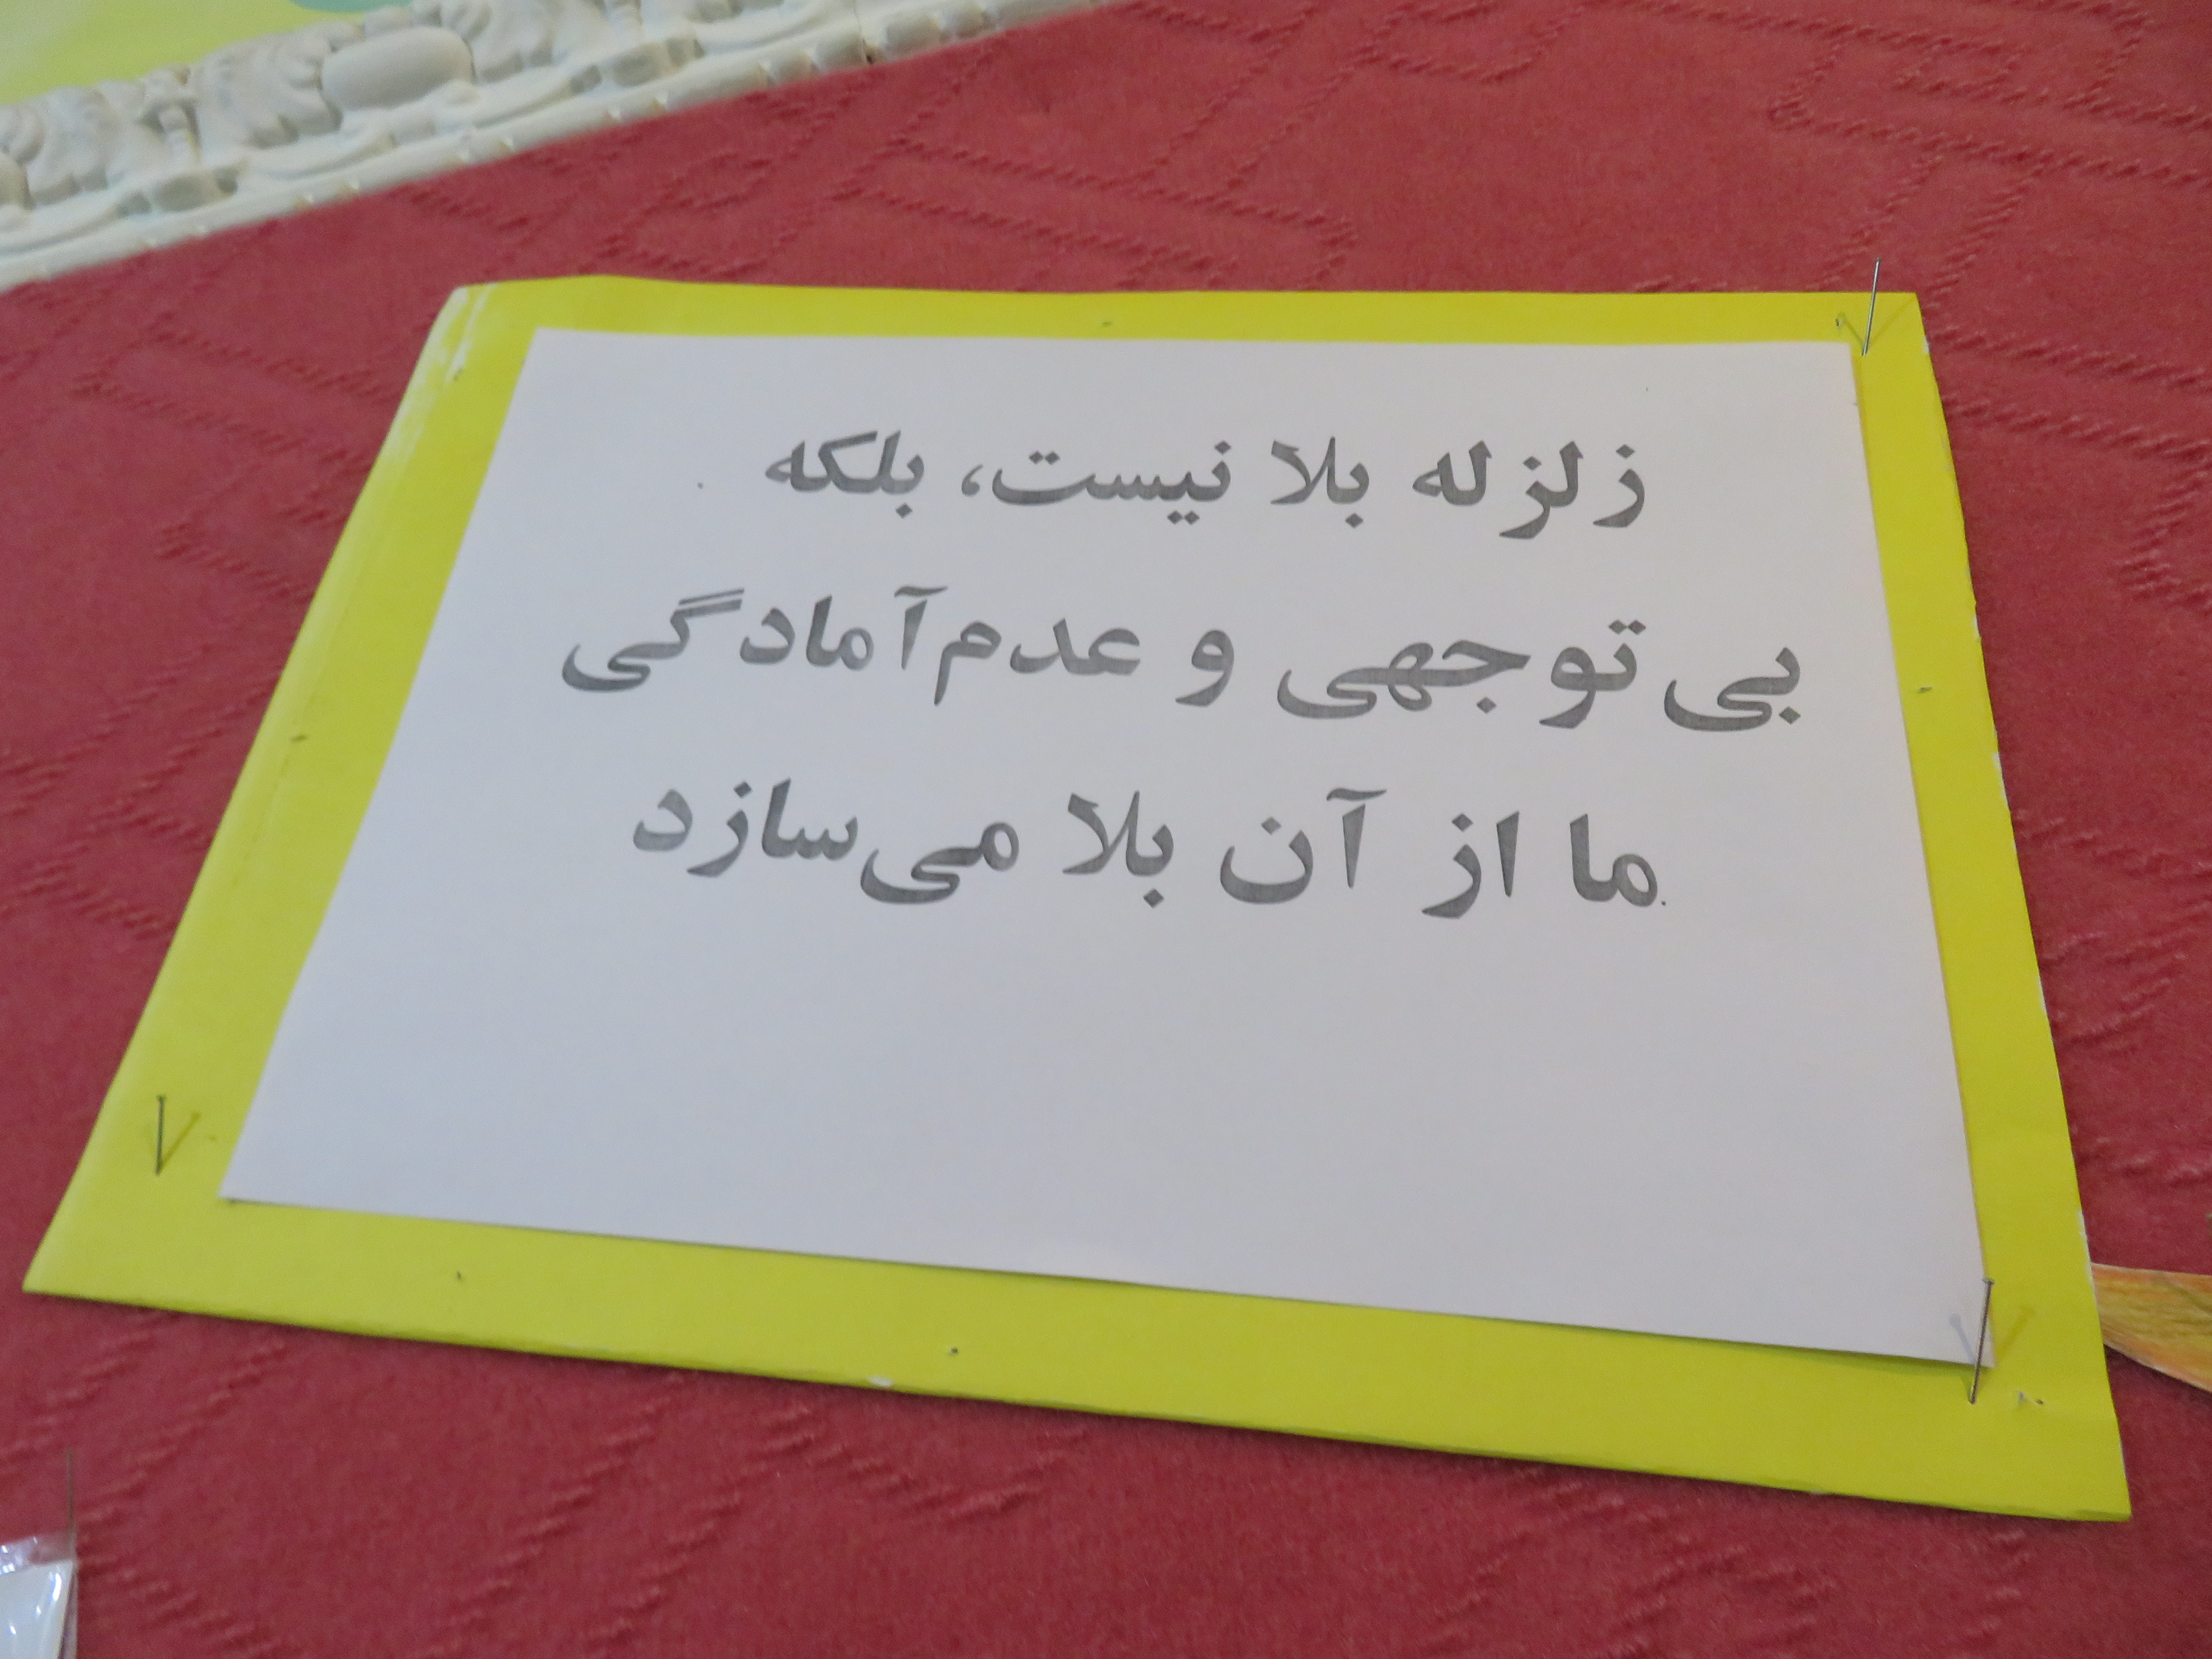 زلزله بلا نیست، بلکه
بی‌توجهی و عدم‌آمادگی
ما از آن بلا می‌سازد